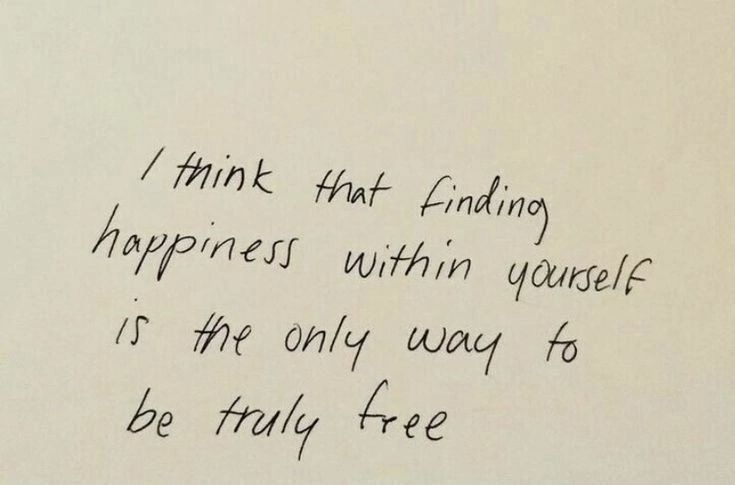 I think that finding
happiness within yourself
is the only way to
be truly free